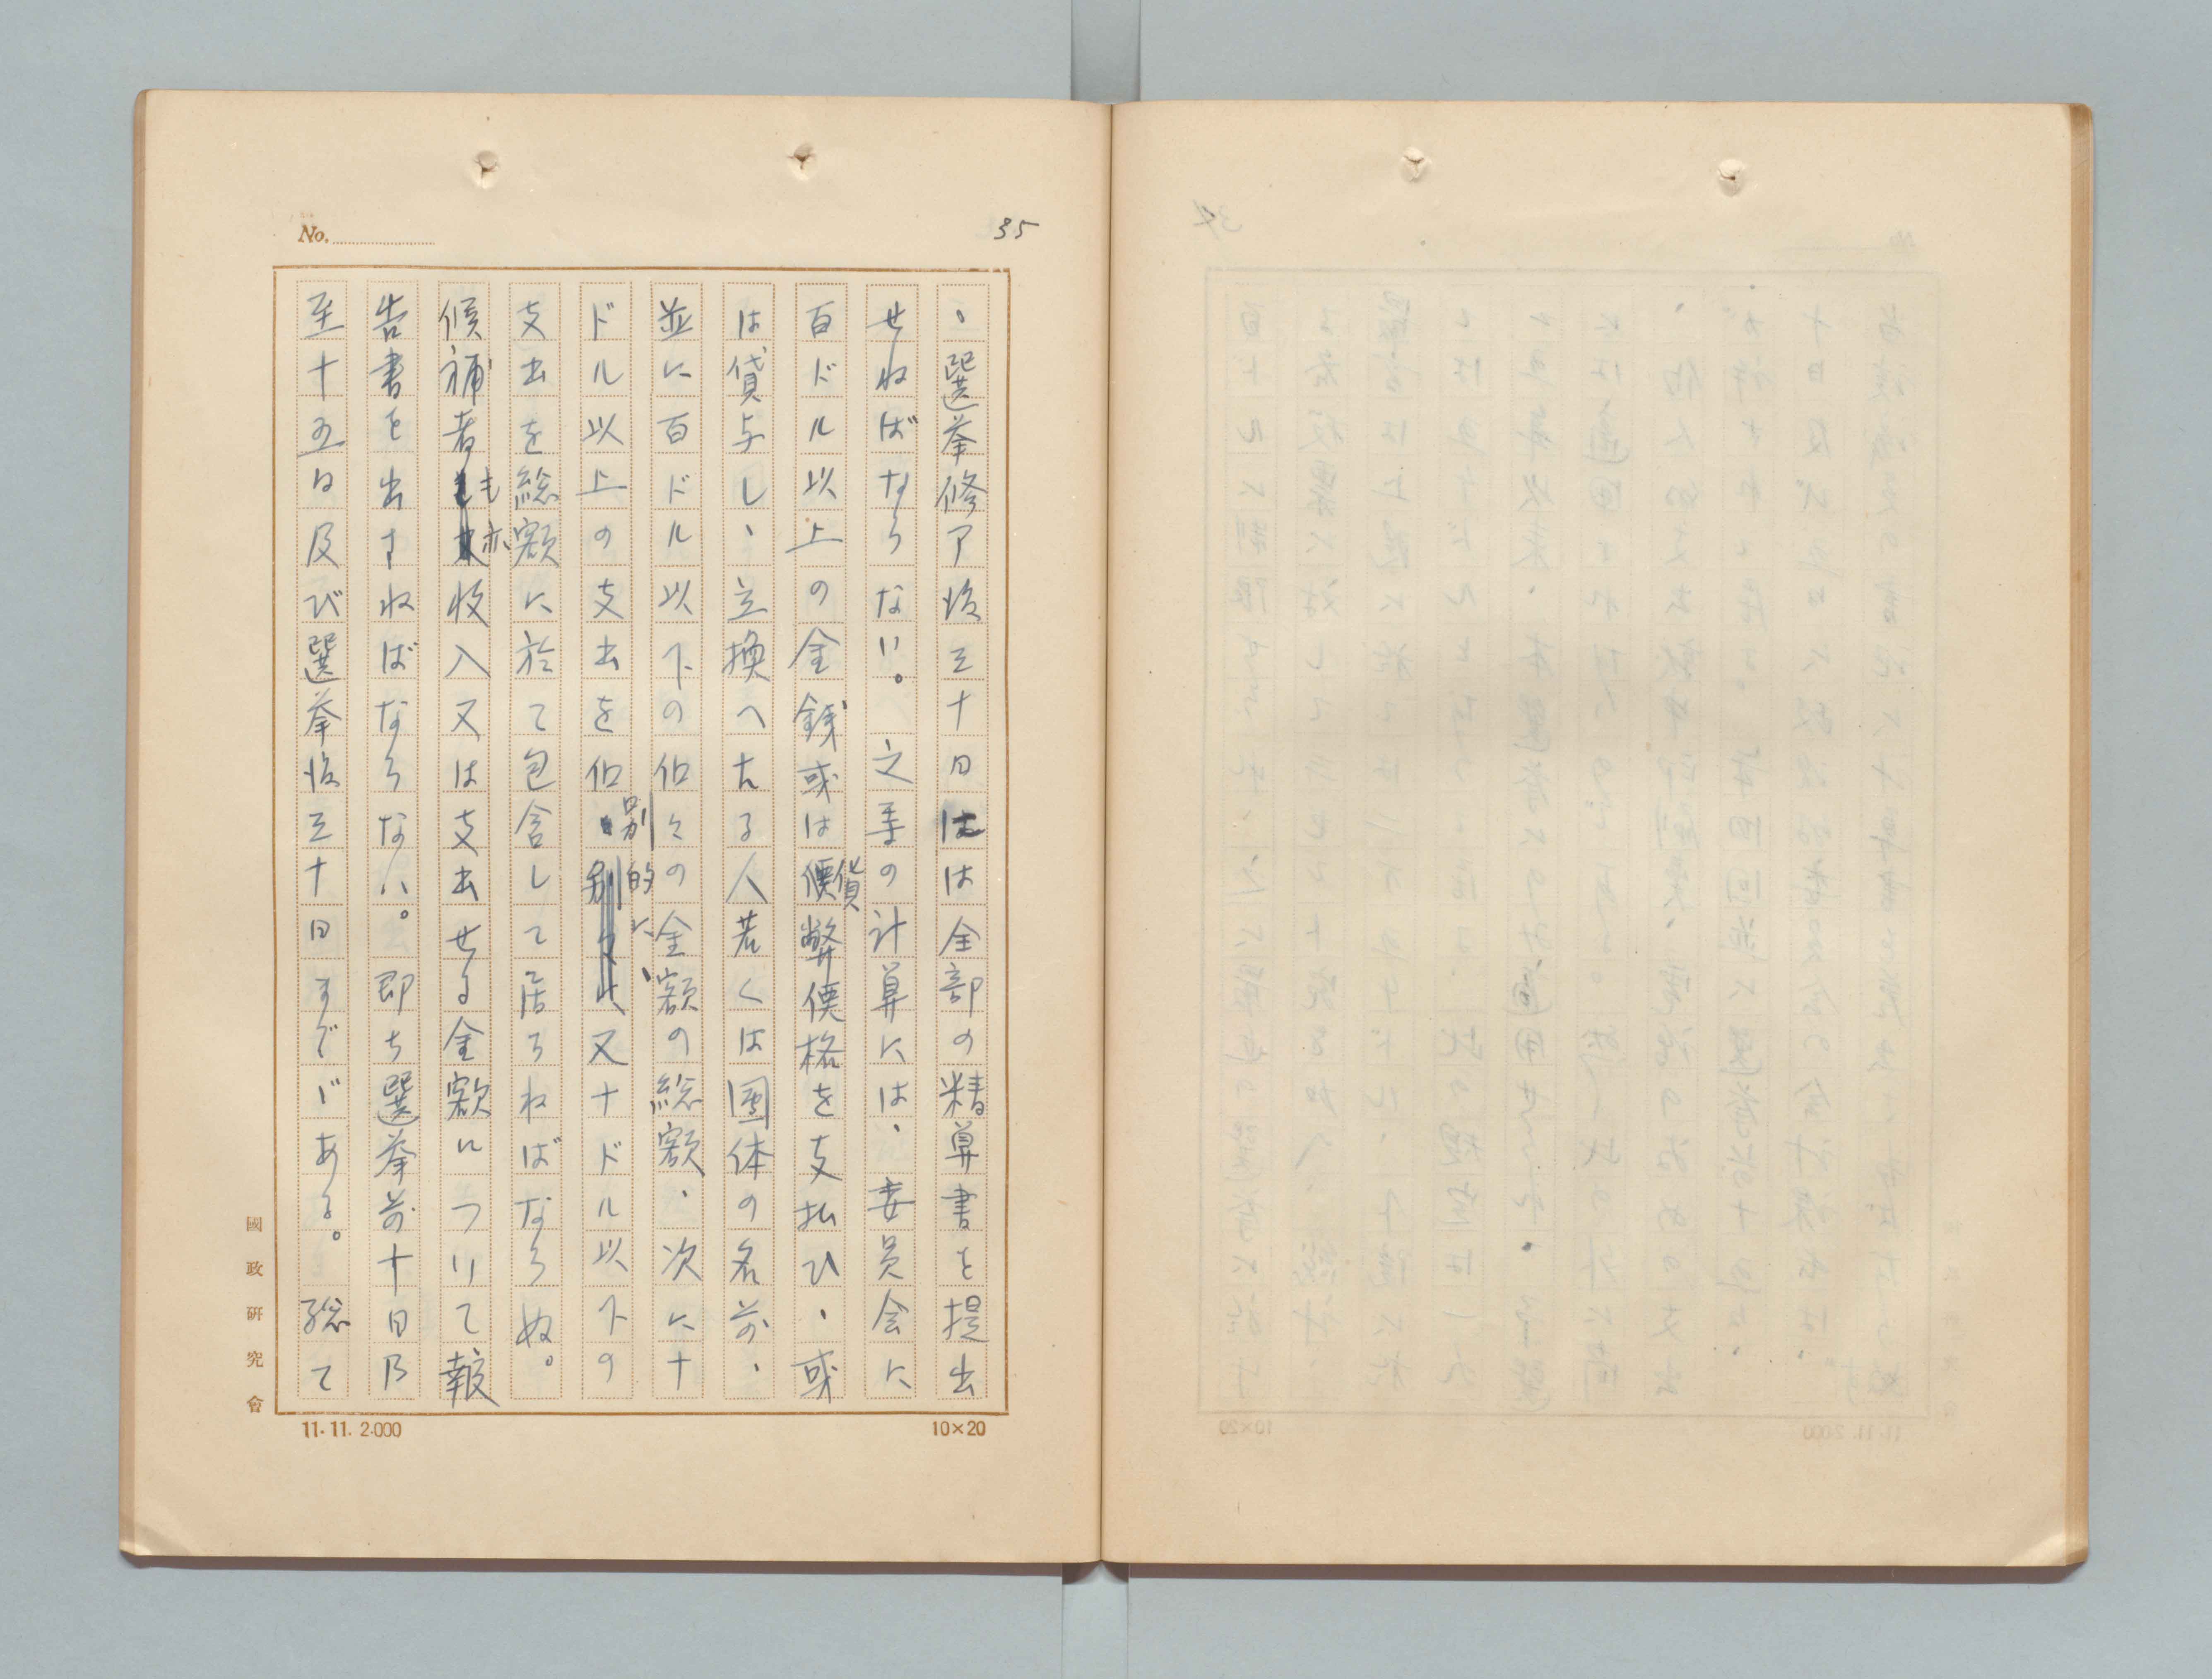 35
No.
、選挙修了後三十日には全部の精算書を提出
せねばならない。之等の計算には、委員会に
百ドル以上の金銭或は貨幣価格を支払ひ、或
は貸与し、立換へたる人若くは團体の名前、
並に百ドル以下の個々の金額の総額、次に十
ドル以上の支出を個別的に、又十ドル以下の
支出を総額に於て包含して居らねばならぬ。
候補者も亦收入又は支出せる金額について報
告書を出すねばならない。即ち選挙前十日乃
至十五日及び選挙後三十日すでゞある。総て
國政研究會
11.11.2.000
10×20